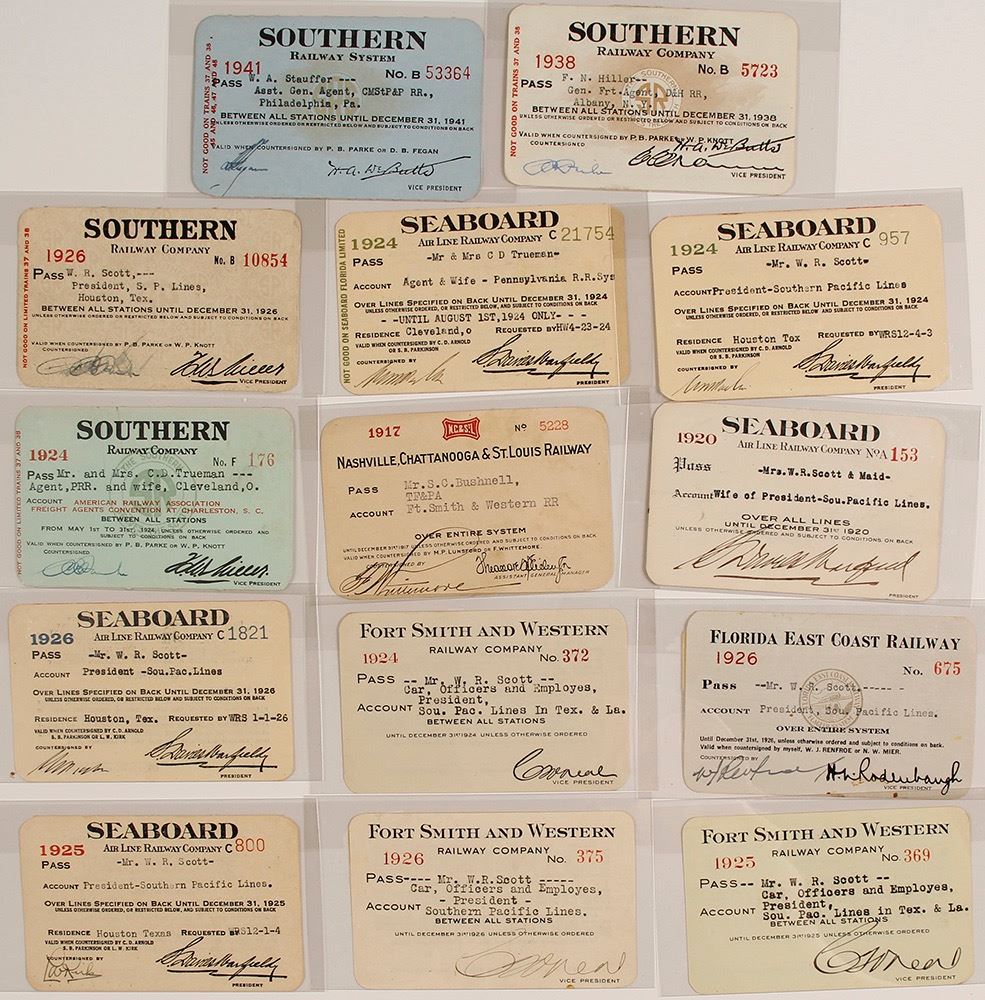 SOUTHERN
RAILWAY SYSTEM
1941
No. B 53364
PASS W. A. Stauffer ---
Asst. Gen. Agent, CMStP&P RR.,
Philadelphia, Pa.
BETWEEN ALL STATIONS UNTIL DECEMBER 31, 1941
UNLESS OTHERWISE ORDERED OR RESTRICTED BELOW AND SUBJECT TO CONDITIONS ON BACK
VALID WHEN COUNTERSIGNED BY P. B. PARKE OR D. B. FEGAN
VICE PRESIDENT
NOT GOOD ON TRAINS 37 AND 38,
45 AND 46, 47 AND 48
SOUTHERN
RAILWAY COMPANY
1938
No. B 5723
PASS F. N. Hiller--
Gen. Frt. Agent, D&H RR,
Albany, N. Y.
BETWEEN ALL STATIONS UNTIL DECEMBER 31, 1938
UNLESS OTHERWISE ORDERED OR RESTRICTED BELOW AND SUBJECT TO CONDITIONS ON BACK
VALID WHEN COUNTERSIGNED BY P. B. PARKE OR W. P. KNOTT
COUNTERSIGNED
VICE PRESIDENT
NOT GOOD ON TRAINS 37 AND 38
SOUTHERN
RAILWAY COMPANY
1926
No. B 10854
PASS W. R. Scott,---
President, S. P. Lines,
Houston, Tex.
BETWEEN ALL STATIONS UNTIL DECEMBER 31, 1926
UNLESS OTHERWISE ORDERED OR RESTRICTED BELOW AND SUBJECT TO CONDITIONS ON BACK
VALID WHEN COUNTERSIGNED BY P. B. PARKE OR W. P. KNOTT
COUNTERSIGNED
VICE PRESIDENT
NOT GOOD ON LIMITED TRAINS 37 AND 38
SEABOARD
1924 AIR LINE RAILWAY COMPANY C 21754
PASS -Mr & Mrs C D Trueman-
ACCOUNT Agent & Wife - Pennsylvania R.R.Sys
OVER LINES SPECIFIED ON BACK UNTIL DECEMBER 31, 1924
UNLESS OTHERWISE ORDERED, OR RESTRICTED BELOW, AND SUBJECT TO CONDITIONS ON BACK
- -UNTIL AUGUST 1ST,1924 ONLY- - -
RESIDENCE Cleveland,o REQUESTED BY HW4-23-24
VALID WHEN COUNTERSIGNED BY C. D. ARNOLD
OR S. B. PARKINSON
COUNTERSIGNED BY
S. Davies Warfield
PRESIDENT
NOT GOOD ON SEABOARD FLORIDA LIMITED
SEABOARD
1924 AIR LINE RAILWAY COMPANY C 957
PASS -Mr. W. R. Scott-
ACCOUNT President-Southern Pacific Lines
OVER LINES SPECIFIED ON BACK UNTIL DECEMBER 31, 1924
UNLESS OTHERWISE ORDERED, OR RESTRICTED BELOW, AND SUBJECT TO CONDITIONS ON BACK
RESIDENCE Houston Tex REQUESTED BY WRS12-4-3
VALID WHEN COUNTERSIGNED BY C. D. ARNOLD
OR S. B. PARKINSON
COUNTERSIGNED BY
S. Davies Warfield
PRESIDENT
SOUTHERN
RAILWAY COMPANY
1924
No. F 176
PASS Mr. and Mrs. C.D.Trueman ---
Agent,PRR. and wife, Cleveland,O.
ACCOUNT AMERICAN RAILWAY ASSOCIATION
FREIGHT AGENTS CONVENTION AT CHARLESTON, S. C.
BETWEEN ALL STATIONS
FROM MAY 1ST TO 31ST, 1924, UNLESS OTHERWISE ORDERED AND
SUBJECT TO CONDITIONS ON BACK
VALID WHEN COUNTERSIGNED BY P. B. PARKE OR W. P. KNOTT
COUNTERSIGNED
VICE PRESIDENT
NOT GOOD ON LIMITED TRAINS 37 AND 38
1917 N.C.&St.L No 5228
NASHVILLE, CHATTANOOGA & ST. LOUIS RAILWAY
PASS Mr.S.C.Bushnell,
TF&PA
ACCOUNT Ft.Smith & Western RR
OVER ENTIRE SYSTEM
UNTIL DECEMBER 31ST 1917 UNLESS OTHERWISE ORDERED AND SUBJECT TO CONDITIONS ON BACK
VALID WHEN COUNTERSIGNED BY H. P. LUNSFORD OR F. WHITTEMORE.
COUNTERSIGNED BY
F. Whittemore
ASSISTANT GENERAL MANAGER
SEABOARD
1920 AIR LINE RAILWAY COMPANY No A 153
Pass -Mrs.W.R.Scott & Maid-
Account Wife of President-Sou.Pacific Lines.
OVER ALL LINES
UNTIL DECEMBER 31st 1920
UNLESS OTHERWISE ORDERED AND SUBJECT TO CONDITIONS ON BACK
S. Davies Warfield
PRESIDENT
SEABOARD
1926 AIR LINE RAILWAY COMPANY C 1821
PASS -Mr. W. R. Scott-
ACCOUNT President -Sou.Pac.Lines
OVER LINES SPECIFIED ON BACK UNTIL DECEMBER 31, 1926
UNLESS OTHERWISE ORDERED, OR RESTRICTED BELOW, AND SUBJECT TO CONDITIONS ON BACK
RESIDENCE Houston, Tex. REQUESTED BY WRS 1-1-26
VALID WHEN COUNTERSIGNED BY C. D. ARNOLD
S. B. PARKINSON OR L. W. KIRK
COUNTERSIGNED BY
S. Davies Warfield
PRESIDENT
FORT SMITH AND WESTERN
RAILWAY COMPANY
1924 No. 372
PASS -- Mr. W. R. Scott --
Car, Officers and Employes,
President,
ACCOUNT Sou. Pac. Lines In Tex. & La.
BETWEEN ALL STATIONS
UNTIL DECEMBER 31ST 1924 UNLESS OTHERWISE ORDERED
VICE PRESIDENT
FLORIDA EAST COAST RAILWAY
1926
No. 675
Pass --Mr. W. R. Scott.----- -
ACCOUNT President, Sou. Pacific Lines.
OVER ENTIRE SYSTEM
Until December 31st, 1926, unless otherwise ordered and subject to conditions on back.
Valid when countersigned by myself, W. J. RENFROE or N. W. MIER.
COUNTERSIGNED BY
W J Renfroe H. N. Rodenbaugh
VICE PRESIDENT
SEABOARD
1925 AIR LINE RAILWAY COMPANY C 800
PASS -Mr. W. R. Scott-
ACCOUNT President-Southern Pacific Lines.
OVER LINES SPECIFIED ON BACK UNTIL DECEMBER 31, 1925
UNLESS OTHERWISE ORDERED, OR RESTRICTED BELOW, AND SUBJECT TO CONDITIONS ON BACK
RESIDENCE Houston Texas REQUESTED BY WRS12-1-4
VALID WHEN COUNTERSIGNED BY C. D. ARNOLD
S. B. PARKINSON OR L. W. KIRK
COUNTERSIGNED BY
S. Davies Warfield
PRESIDENT
FORT SMITH AND WESTERN
RAILWAY COMPANY
1926 No. 375
PASS---- Mr. W.R.Scott -----
Car, Officers and Employes,
- President -
ACCOUNT Southern Pacific Lines.
BETWEEN ALL STATIONS
UNTIL DECEMBER 31ST 1926 UNLESS OTHERWISE ORDERED
VICE PRESIDENT
FORT SMITH AND WESTERN
RAILWAY COMPANY
1925 No. 369
PASS-- Mr. W. R. Scott --
Car, Officers and Employes,
President,
ACCOUNT Sou. Pac. Lines in Tex. & La.
BETWEEN ALL STATIONS
UNTIL DECEMBER 31ST 1925 UNLESS OTHERWISE ORDERED
VICE PRESIDENT